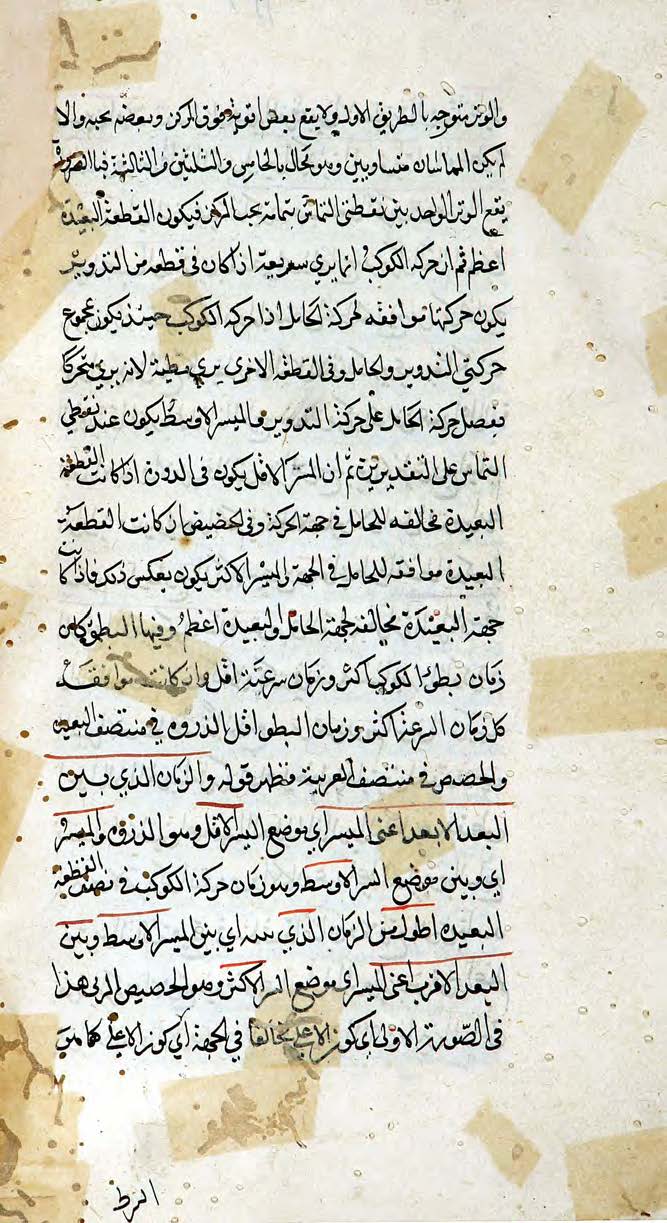 والوتر متوجه بالطريق الاول ولا يقع بعض اقوية فوق المركز وبعضه تحته والا
لم يكن المماسان متساويين وهو محال بالخامس والثلثين من الثالثة فبالضرورة
يقع الوتر الواحد بين نقطتى التماس بتمامه تحت المركز فيكون القطعة البعيدة
اعظم ثم ان حركة الكوكب انما يرى سريعة اذا كان فى قطعه من التدوير
يكون حركتها موافقه لحركة الحامل اذا حركة الكوكب حينئذ يكون مجموع
حركتي التدوير والحامل وفى القطعه الاخرى يرى بطيئة لانه يرى متحركا
بفضل حركة الحامل على حركة التدوير والمسير الاوسط يكون عند نقطتي
التماس على التقديرين ثم ان المسير الاقل يكون فى الذروة اذا كانت القطعة
البعيدة مخالفه للحامل في جهة الحركة وفى الحضيض ان كانت القطعة
البعيدة موافقه للحامل في الجهة والمسير الاكثر يكون بعكس ذلك فاذا كانت
جهة البعيدة مخالفه لجهة الحامل والبعيدة اعظم وفيها البطؤ كان
زمان بطوء الكوكب اكثر وزمان سرعته اقل وان كانت موافقة
كان زمان السرعة اكثر وزمان البطو اقل الذروه في منتصف البعيدة
والحضيض في منتصف القريبة فظهر قوله والزمان الذي بين
البعد الابعد اعنى المسير اي موضع السير الاقل وهو الذروه والمسير
اي وبين موضع السير الاوسط وهو زمان حركة الكوكب في نصف القطعة
البعيده اطول من الزمان الذي بينه اي بين المسير الاوسط وبين
البعد الاقرب اعنى المسير اى موضع السير الاكثر وهو الحضيض المرئى هذا
فى الصورة الاولى اى كون الاعلى مخالفا في الجهة اي كون الاعلى كما هو
الشرط